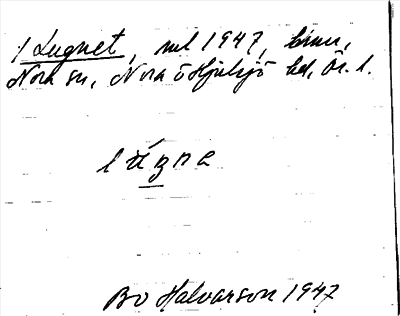 1 Lugnet, msl 1947, bruk,
Nora sn, Nora o Hjulsjö hd, Ör. l.
lúgne
Bo Halvarson 1947